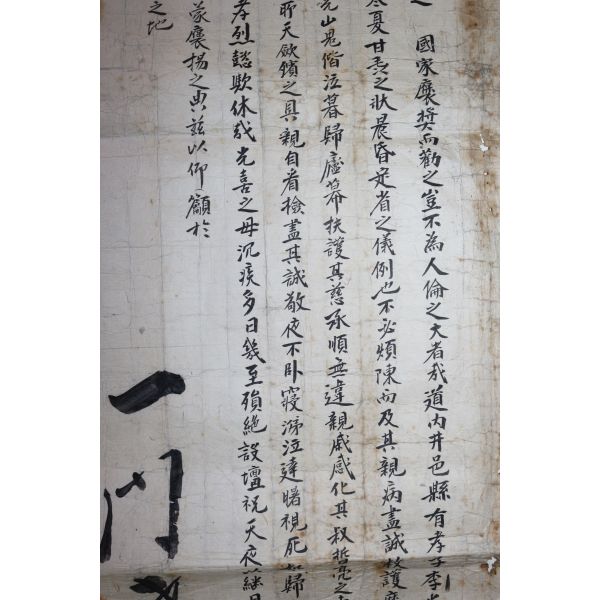 國家褒奬而勸之豈不為人倫之大者哉道內井邑縣有孝子李
冬夏甘旨之狀晨昏定省之儀例也不必煩陳而及其親病盡誠救護
光山晃偕泣暮歸廬幕扶護其慈承順無違親戚感化其叔哲亮之
聊天飮饋之具親自看檢盡其誠敬夜不臥寢涕泣達曙視死如歸
孝烈懿歟休哉光喜之母沉疾多日幾至殞絶設壇祝天夜以繼日
蒙褒揚之典玆以仰籲於
之地
一門